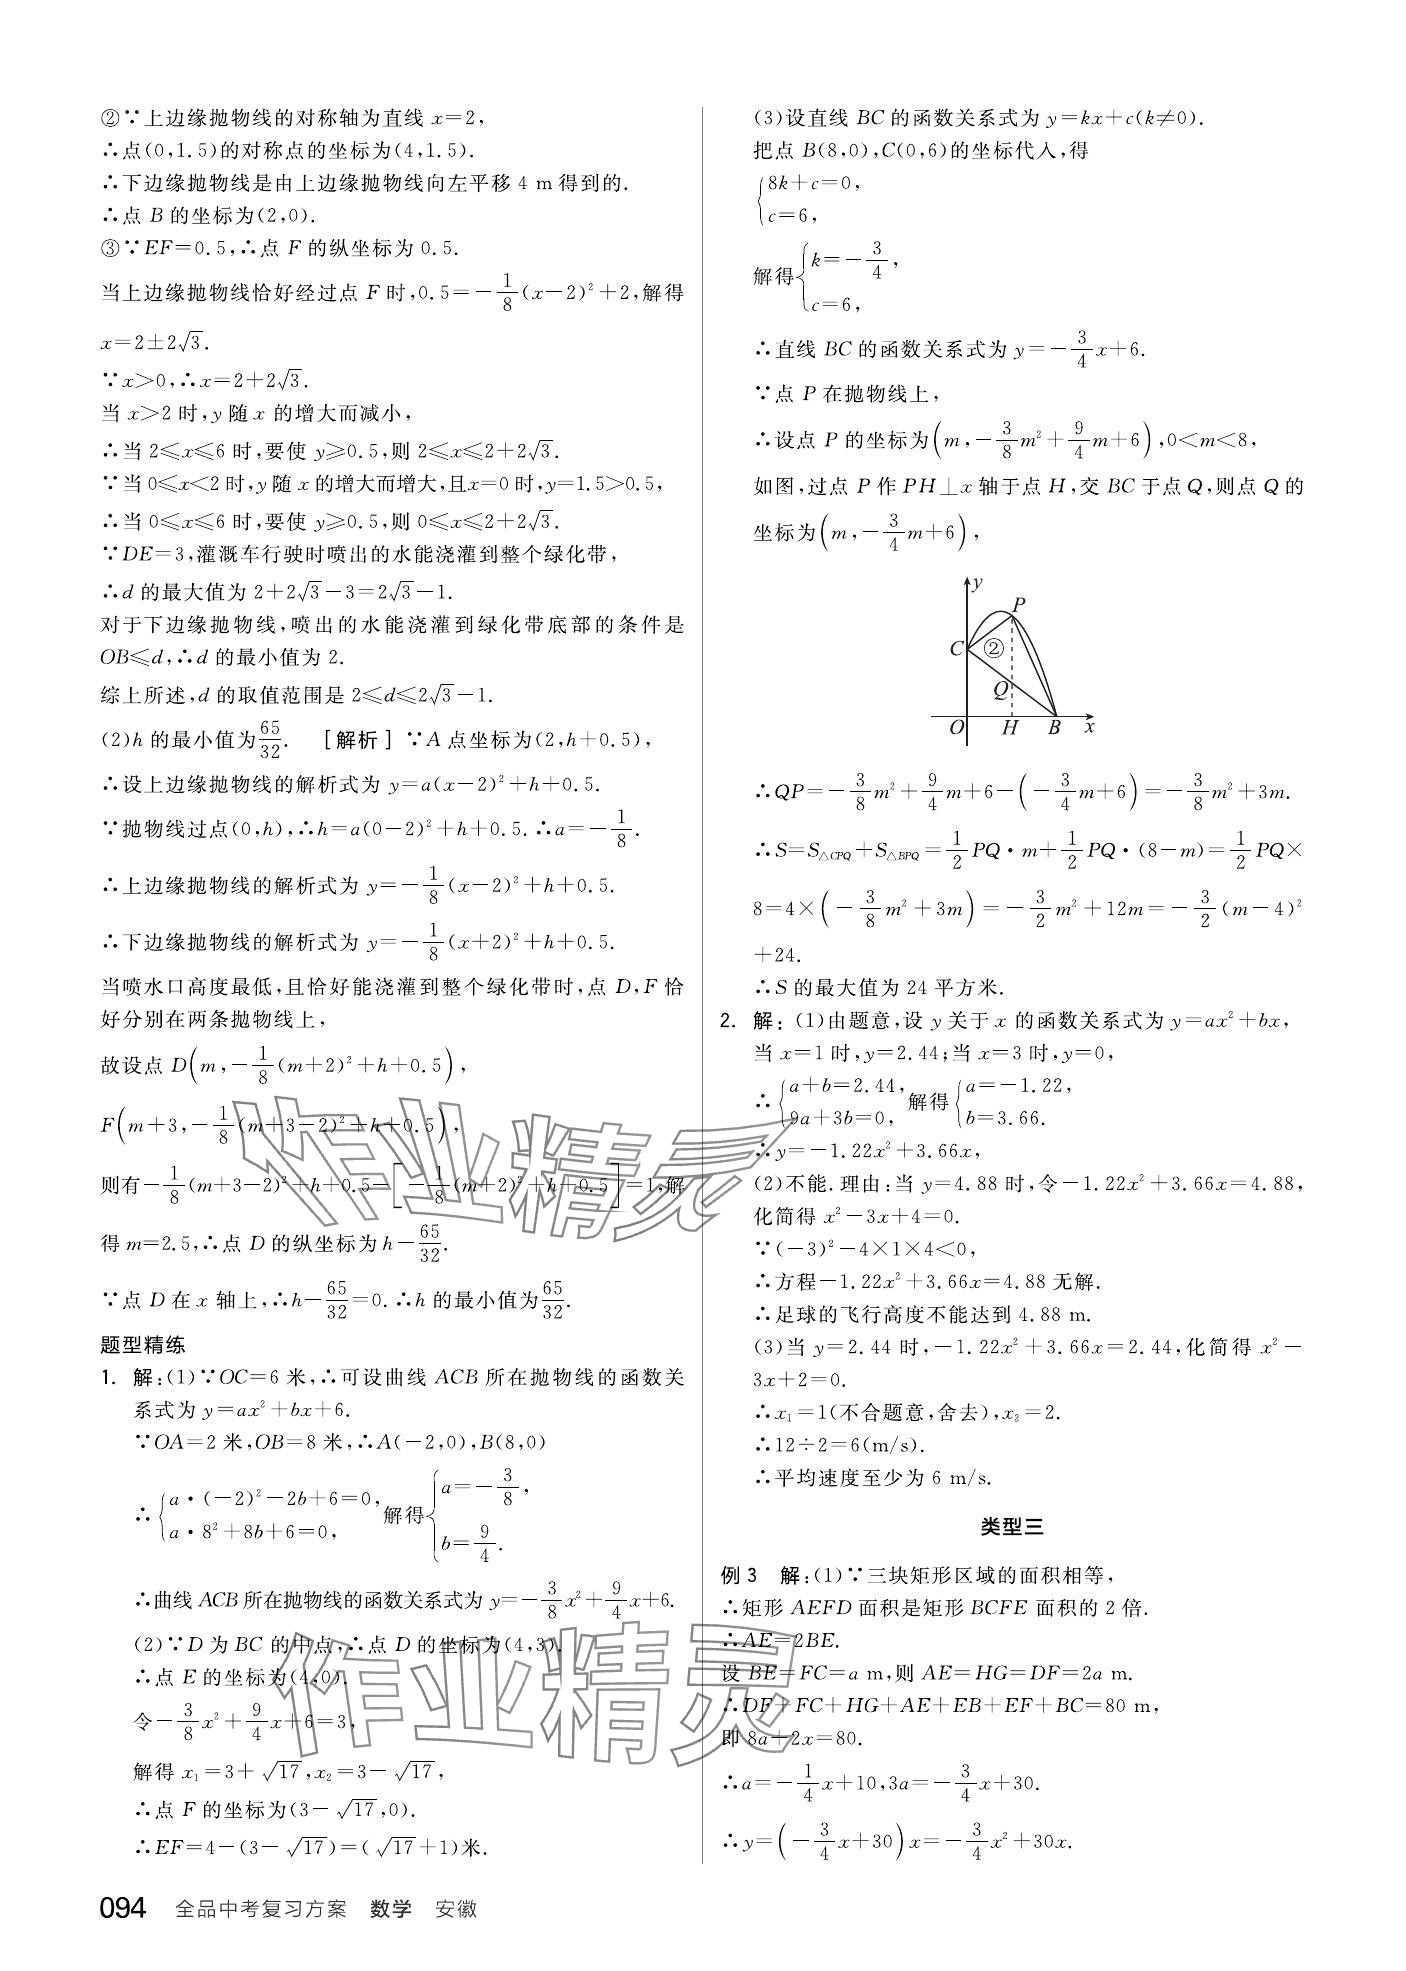 ②∵上边缘抛物线的对称轴为直线 x=2,
∴点(0,1.5)的对称点的坐标为(4,1.5).
∴下边缘抛物线是由上边缘抛物线向左平移 4 m 得到的.
∴点 B 的坐标为(2,0).
③∵EF=0.5,∴点 F 的纵坐标为 0.5.
当上边缘抛物线恰好经过点 F 时,0.5=-1/8(x-2)²+2,解得
x=2±2√3.
∵x>0,∴x=2+2√3.
当 x>2 时,y 随 x 的增大而减小,
∴当 2≤x≤6 时,要使 y≥0.5,则 2≤x≤2+2√3.
∵当 0≤x<2 时,y 随 x 的增大而增大,且x=0 时,y=1.5>0.5,
∴当 0≤x≤6 时,要使 y≥0.5,则 0≤x≤2+2√3.
∵DE=3,灌溉车行驶时喷出的水能浇灌到整个绿化带,
∴d 的最大值为 2+2√3-3=2√3-1.
对于下边缘抛物线,喷出的水能浇灌到绿化带底部的条件是
OB≤d,∴d 的最小值为 2.
综上所述,d 的取值范围是 2≤d≤2√3-1.
(2)h 的最小值为65/32. [解析] ∵A 点坐标为(2,h+0.5),
∴设上边缘抛物线的解析式为 y=a(x-2)²+h+0.5.
∵抛物线过点(0,h),∴h=a(0-2)²+h+0.5.∴a=-1/8.
∴上边缘抛物线的解析式为 y=-1/8(x-2)²+h+0.5.
∴下边缘抛物线的解析式为 y=-1/8(x+2)²+h+0.5.
当喷水口高度最低,且恰好能浇灌到整个绿化带时,点 D,F 恰
好分别在两条抛物线上,
故设点 D(m,-1/8(m+2)²+h+0.5),
F(m+3,-1/8(m+3-2)²+h+0.5),
则有-1/8(m+3-2)²+h+0.5-[-1/8(m+2)²+h+0.5]=1,解
得 m=2.5,∴点 D 的纵坐标为 h-65/32.
∵点 D 在 x 轴上,∴h-65/32=0.∴h 的最小值为65/32.
题型精练
1. 解:(1)∵OC=6 米,∴可设曲线 ACB 所在抛物线的函数关
系式为 y=ax²+bx+6.
∵OA=2 米,OB=8 米,∴A(-2,0),B(8,0)
∴{a·(-2)²-2b+6=0, a·8²+8b+6=0, 解得{a=-3/8, b=9/4.
∴曲线 ACB所在抛物线的函数关系式为 y=-3/8x²+9/4x+6.
(2)∵D 为 BC 的中点,∴点 D 的坐标为(4,3).
∴点 E 的坐标为(4,0).
令-3/8x²+9/4x+6=3,
解得 x₁=3+√17,x₂=3-√17,
∴点 F 的坐标为(3-√17,0).
∴EF=4-(3-√17)=(√17+1)米.
(3)设直线 BC 的函数关系式为 y=kx+c(k≠0).
把点 B(8,0),C(0,6)的坐标代入,得
{8k+c=0,
c=6,
解得{k=-3/4,
c=6,
∴直线 BC 的函数关系式为 y=-3/4x+6.
∵点 P 在抛物线上,
∴设点 P 的坐标为(m,-3/8m²+9/4m+6),0<m<8,
如图,过点 P 作 PH⊥x 轴于点 H,交 BC 于点 Q,则点 Q 的
坐标为(m,-3/4m+6),
y
P
C
②
Q
O H B x
∴QP=-3/8m²+9/4m+6-(-3/4m+6)=-3/8m²+3m.
∴S=S△CPQ+S△BPQ=1/2PQ·m+1/2PQ·(8-m)=1/2PQ×
8=4×(-3/8m²+3m)=-3/2m²+12m=-3/2(m-4)²
+24.
∴S 的最大值为 24 平方米.
2. 解: (1)由题意,设 y 关于 x 的函数关系式为 y=ax²+bx,
当 x=1 时,y=2.44;当 x=3 时,y=0,
∴{a+b=2.44, 9a+3b=0, 解得{a=-1.22, b=3.66.
∴y=-1.22x²+3.66x,
(2)不能.理由:当 y=4.88 时,令-1.22x²+3.66x=4.88,
化简得 x²-3x+4=0.
∵(-3)²-4×1×4<0,
∴方程-1.22x²+3.66x=4.88 无解.
∴足球的飞行高度不能达到 4.88 m.
(3)当 y=2.44 时,-1.22x²+3.66x=2.44,化简得 x²-
3x+2=0.
∴x₁=1(不合题意,舍去),x₂=2.
∴12÷2=6(m/s).
∴平均速度至少为 6 m/s.
类型三
例 3 解:(1)∵三块矩形区域的面积相等,
∴矩形 AEFD 面积是矩形 BCFE 面积的 2 倍.
∴AE=2BE.
设 BE=FC=a m,则 AE=HG=DF=2a m.
∴DF+FC+HG+AE+EB+EF+BC=80 m,
即 8a+2x=80.
∴a=-1/4x+10,3a=-3/4x+30.
∴y=(-3/4x+30)x=-3/4x²+30x.
作业精灵
作业精灵
094 全品中考复习方案 数学 安徽